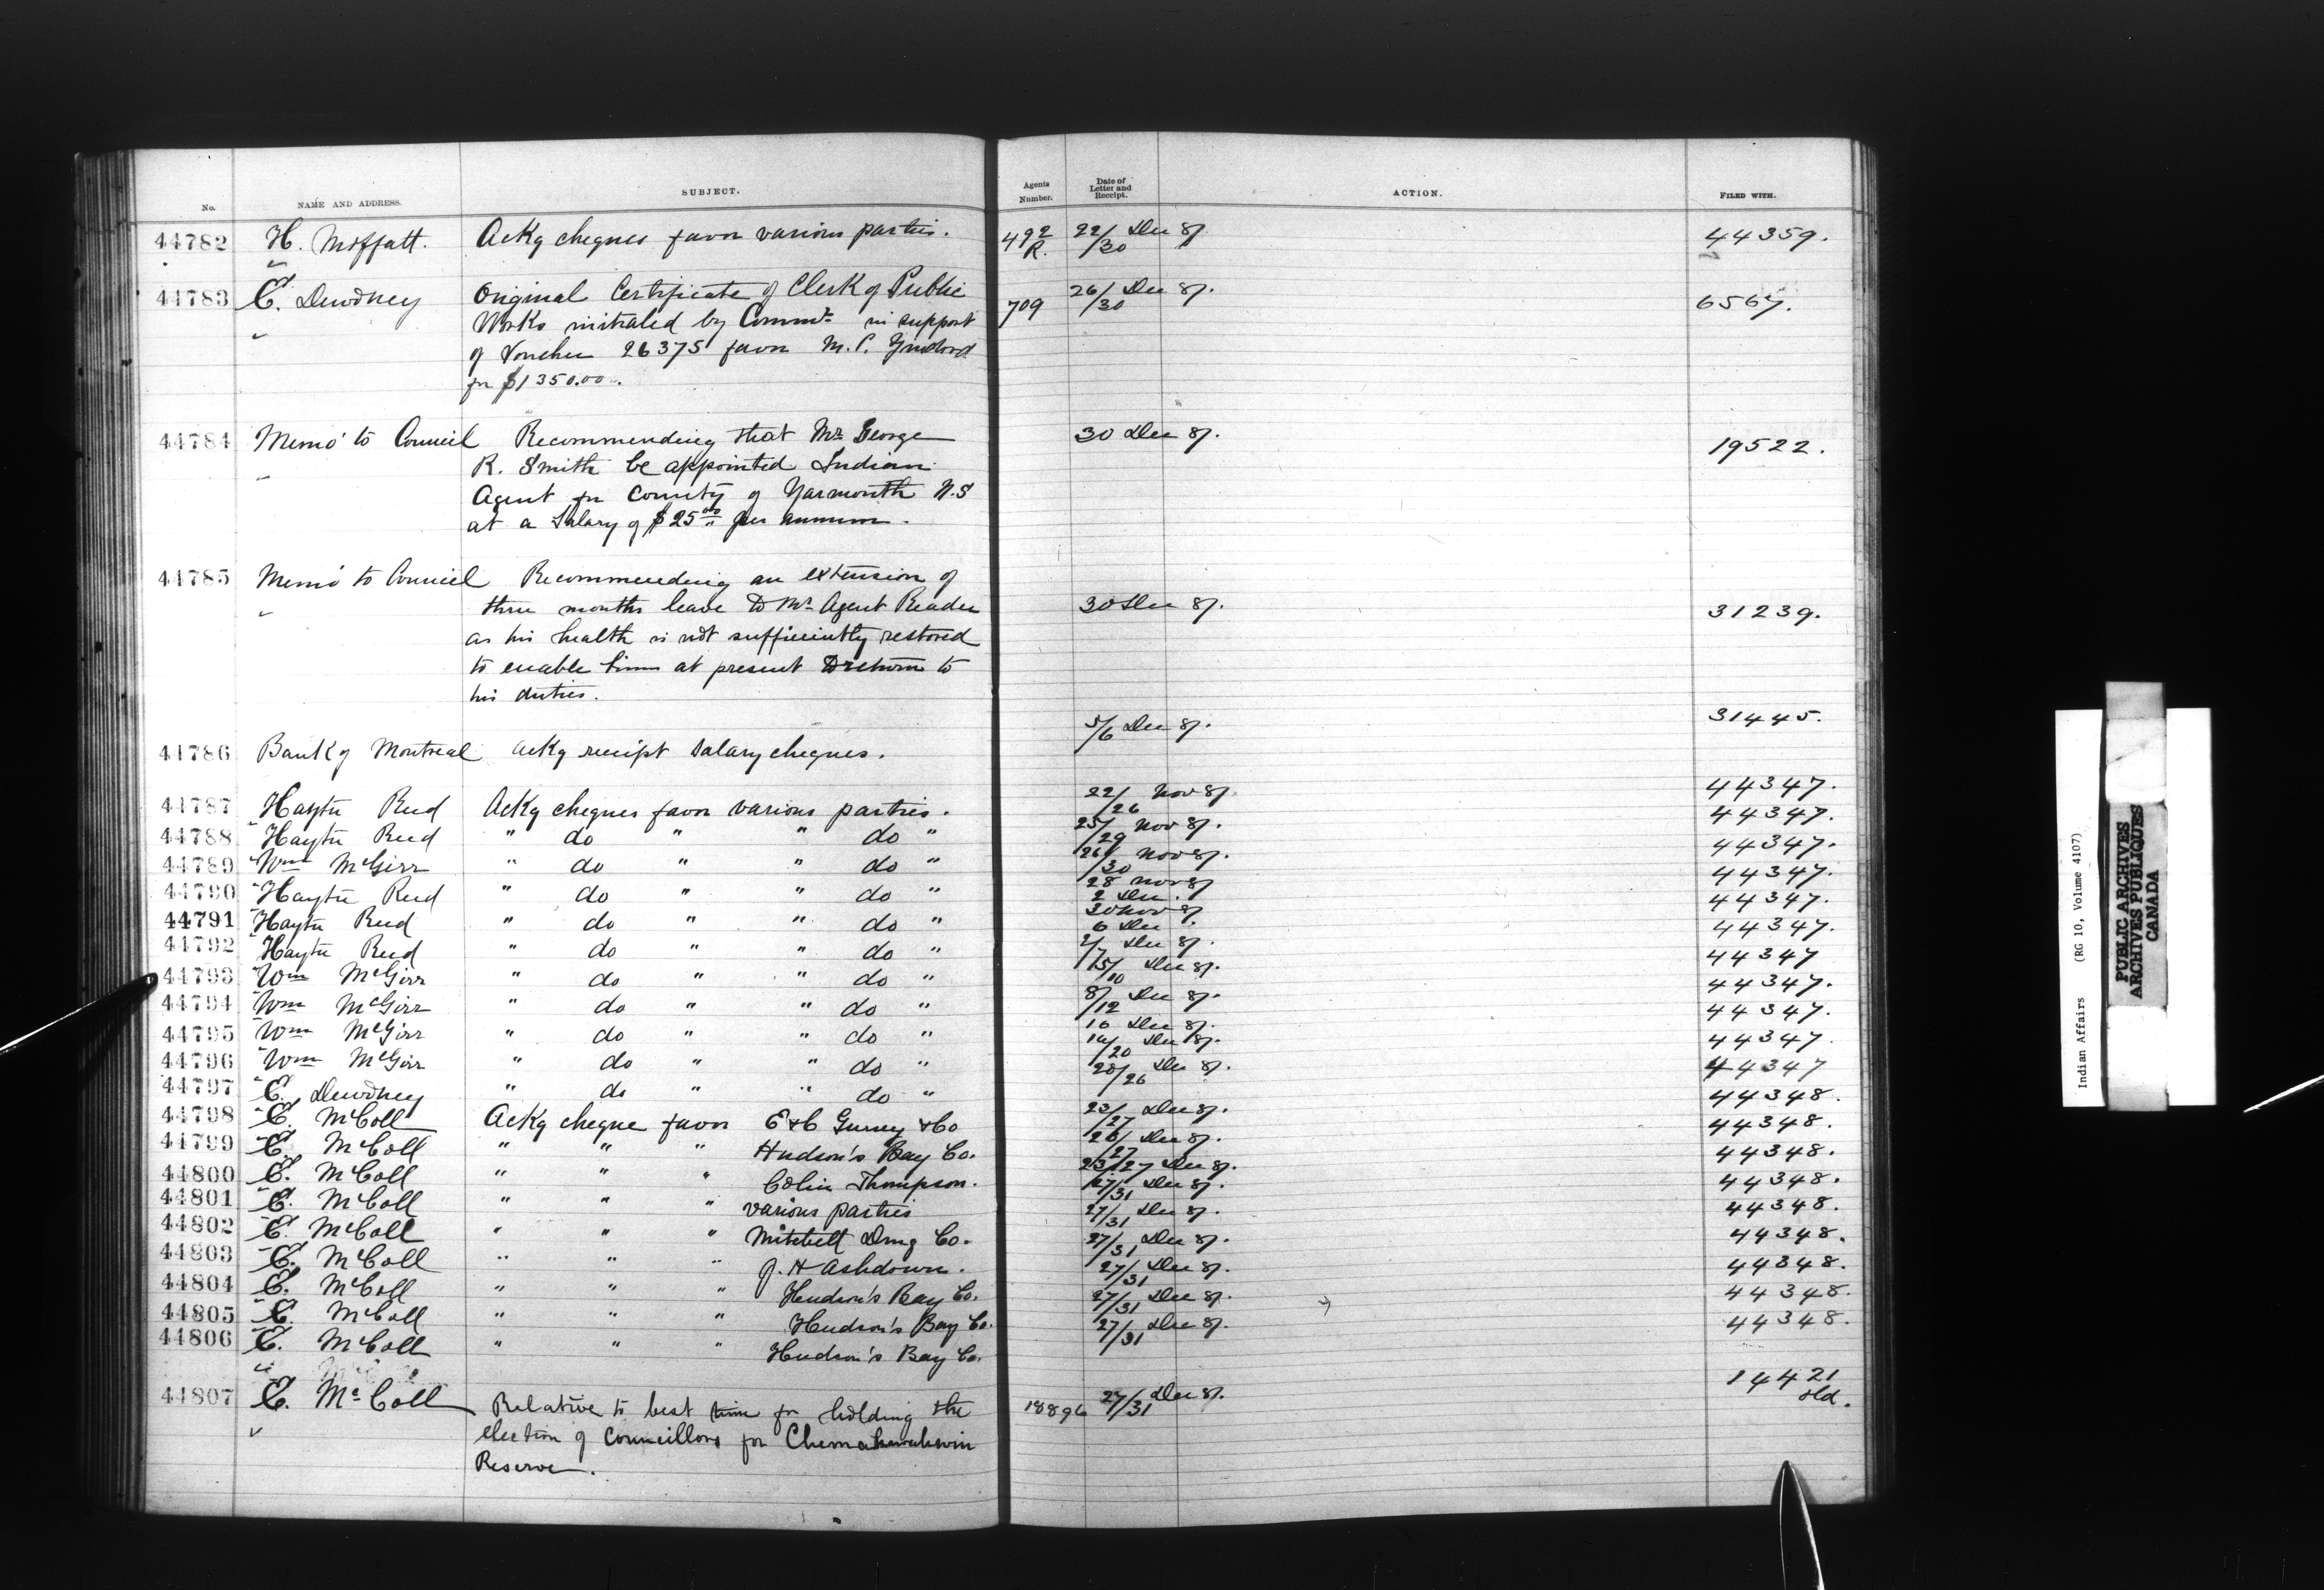 No. NAME AND ADDRESS. SUBJECT. Agents Number. Date of Letter and Receipt. ACTION. FILED WITH.
44782 H. Moffatt. Ackg cheques favor various parties. 492 R. 22/30 Dec 87. 44359.
44783 E. Dewdney Original Certificate of Clerk of Public 709 26/30 Dec 87. 6567.
Works initialed by Commr. in support
of Voucher 26375 favor M. P.
for $1350.00.
44784 Memo to Council Recommending that Mr George 30 Dec 87. 19522.
R. Smith be appointed Indian
Agent for County of Yarmouth N.S
at a Salary of $25.00 per annum.
44785 Memo to Council Recommending an extension of
three months leave to Mr Agent Reader 30 Dec 87. 31239.
as his health is not sufficiently restored
to enable him at present to return to
his duties.
44786 Bank of Montreal Ackg receipt salary cheques. 5/6 Dec 87. 31445.
44787 Hayter Reed Ackg cheques favor various parties. 22/26 Nov 87. 44347.
44788 Hayter Reed " do " " do " 25/29 Nov 87. 44347.
44789 Wm McGirr " do " " do " 26/30 Nov 87. 44347.
44790 Hayter Reed " do " " do " 28 Nov 87 2 Dec. 44347.
44791 Hayter Reed " do " " do " 30 Nov 87 6 Dec. 44347.
44792 Hayter Reed " do " " do " 2/7 Dec 87. 44347.
44793 Wm McGirr " do " " do " /10 Dec 87. 44347
44794 Wm McGirr " do " " do " 8/12 Dec 87. 44347.
44795 Wm McGirr " do " " do " 10 Dec 87. 44347.
44796 Wm McGirr " do " " do " /20 Dec 87. 44347.
44797 E. Dewdney " do " " do " 20/26 Dec 87. 44347
44798 E. McColl Ackg cheque favor E & C Gurney & Co 23/27 Dec 87. 44348.
44799 E. McColl " " " Hudson's Bay Co. /27 Dec 87. 44348.
44800 E. McColl " " " Colin Thompson. 23/27 Dec 87. 44348.
44801 E. McColl " " " various parties 27/31 Dec 87. 44348.
44802 E. McColl " " " Mitchell Drug Co. 27/31 Dec 87. 44348.
44803 E. McColl " " " J. H Ashdown. 27/31 Dec 87. 44348.
44804 E. McColl " " " Hudson's Bay Co. 27/31 Dec 87. 44348.
44805 E. McColl " " " Hudson's Bay Co. 27/31 Dec 87. 44348.
44806 E. McColl " " " Hudson's Bay Co. 27/31 Dec 87. 44348.
44807 E. McColl Relative to best time for holding the 18896 27/31 Dec 87. 14421 old.
election of Councillors for Chemahawahwin
Reserve.
Indian Affairs (RG 10, Volume 4107)
PUBLIC ARCHIVES
ARCHIVES PUBLIQUES
CANADA